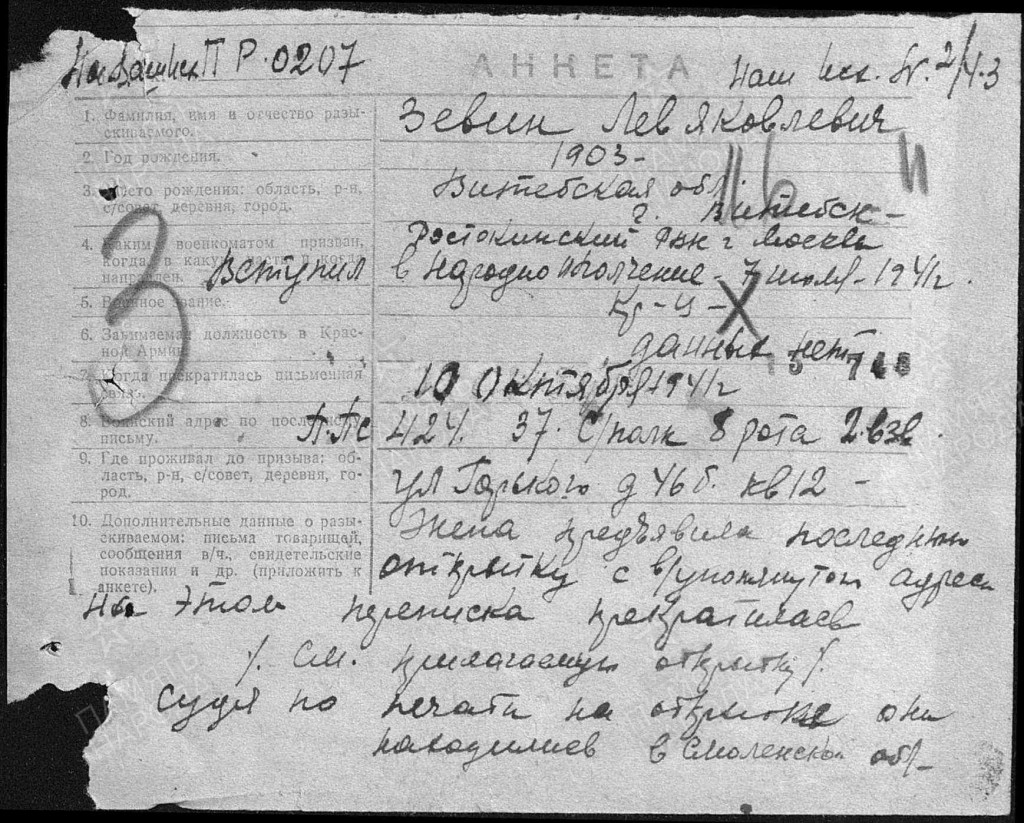 На Ваш исх ПР. 0207
АНКЕТА
Наш исх. №. 2/4.3
1. Фамилия, имя и отчество разыскиваемого.
Зевин Лев Яковлевич
2. Год рождения.
1903 -
3. Место рождения: область, р-н, с/совет, деревня, город.
Витебская обл.
г. Витебск -
4. Каким военкоматом призван, когда, в какую часть и когда направлен.
Ростокинский РВК г Москвы
Вступил в Народно ополчение - 7 июля - 1941 г.
5. Военное звание.
Кр-ц -
6. Занимаемая должность в Красной Армии.
данных нет
7. Когда прекратилась письменная связь.
10 Октября 1941 г
8. Воинский адрес по последнему письму.
П.Пс 424. 37. С/полк 8 рота 2. взв.
9. Где проживал до призыва: область, р-н, с/совет, деревня, город.
ул Горького д 46 б. кв 12 -
10. Дополнительные данные о разыскиваемом: письма товарищей, сообщения в/ч., свидетельские показания и др. (приложить к анкете).
Жена предъявила последнюю
открытку с в/упомянутом адресом
На этом переписка прекратилась
/. См. прилагаемую открытку /.
Судя по печати на открытке они
находились в Смоленской обл -
3